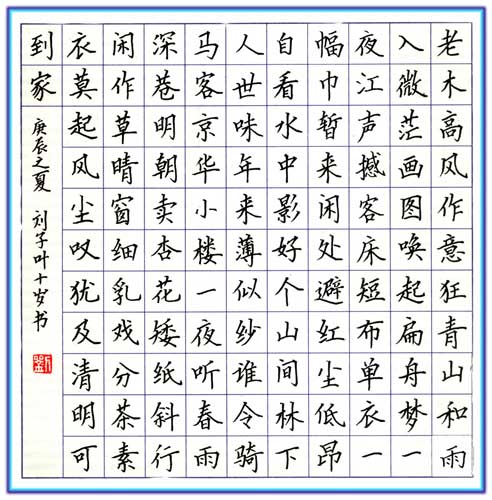 老木高风作意狂青山和雨
入微茫画图唤起扁舟梦一
夜江声撼客床短布单衣一
幅巾暂来闲处避红尘低昂
自看水中影好个山间林下
人世味年来薄似纱谁令骑
马客京华小楼一夜听春雨
深巷明朝卖杏花矮纸斜行
闲作草晴窗细乳戏分茶素
衣莫起风尘叹犹及清明可
到家 庚辰之夏 刘子叶十岁书
劉